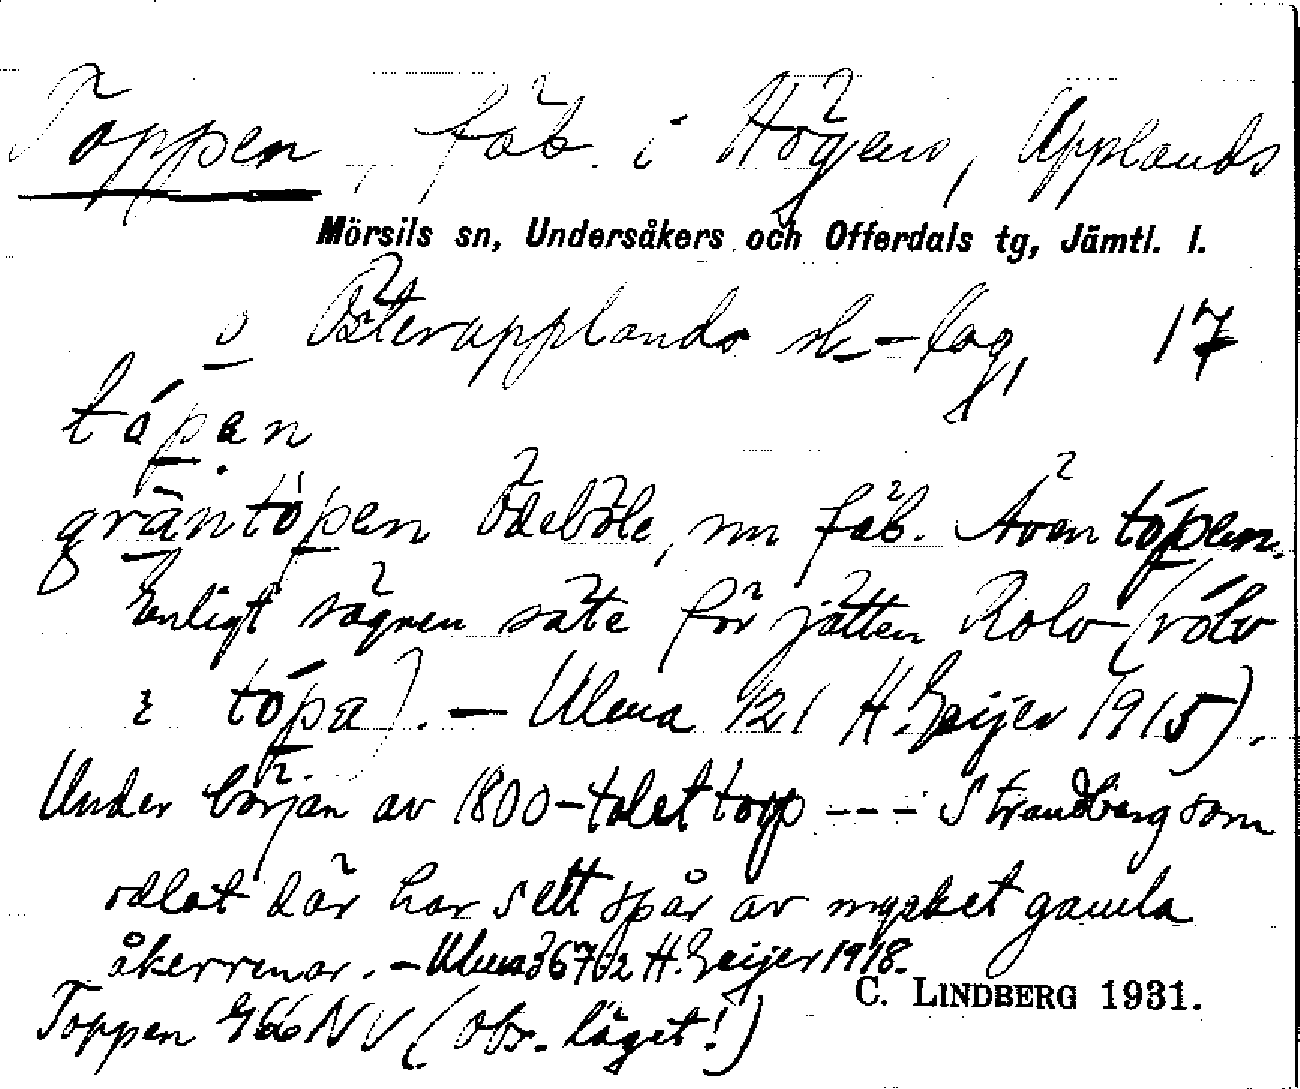 Toppen, fäb. i Högens, Upplands
Mörsils sn, Undersåkers och Offerdals tg, Jämtl. l.
o Österupplands sk-lag, 17
tópan
gräntòpen Ödeböle, nu fäb. Även tópen.
Enligt sägnen säte för jätten Rolv (rólv
i tópa). — Ulma 121 H. Geijer 1915).
Under början av 1800-talet torp --- Strandberg som
odlat där har sett spår av mycket gamla
åkerrenar. – Ulma 36702 H. Geijer 1918.
C. LINDBERG 1931.
Toppen NV (obs. läget!)